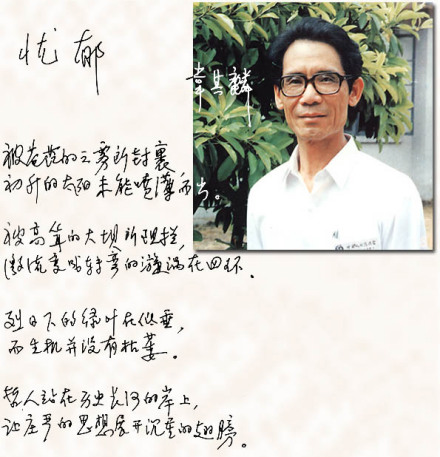 忧郁
韋其麟
被苍茫的云雾所封裹，
初升的太阳未能喷薄而出。
被高耸的大坝所阻拦，
激流变 的漩涡在回环。
烈日下的绿叶在低垂，
而生机并没有枯萎。
哲人站在历史长河的岸上，
让庄严的思想展开沉重的翅膀。